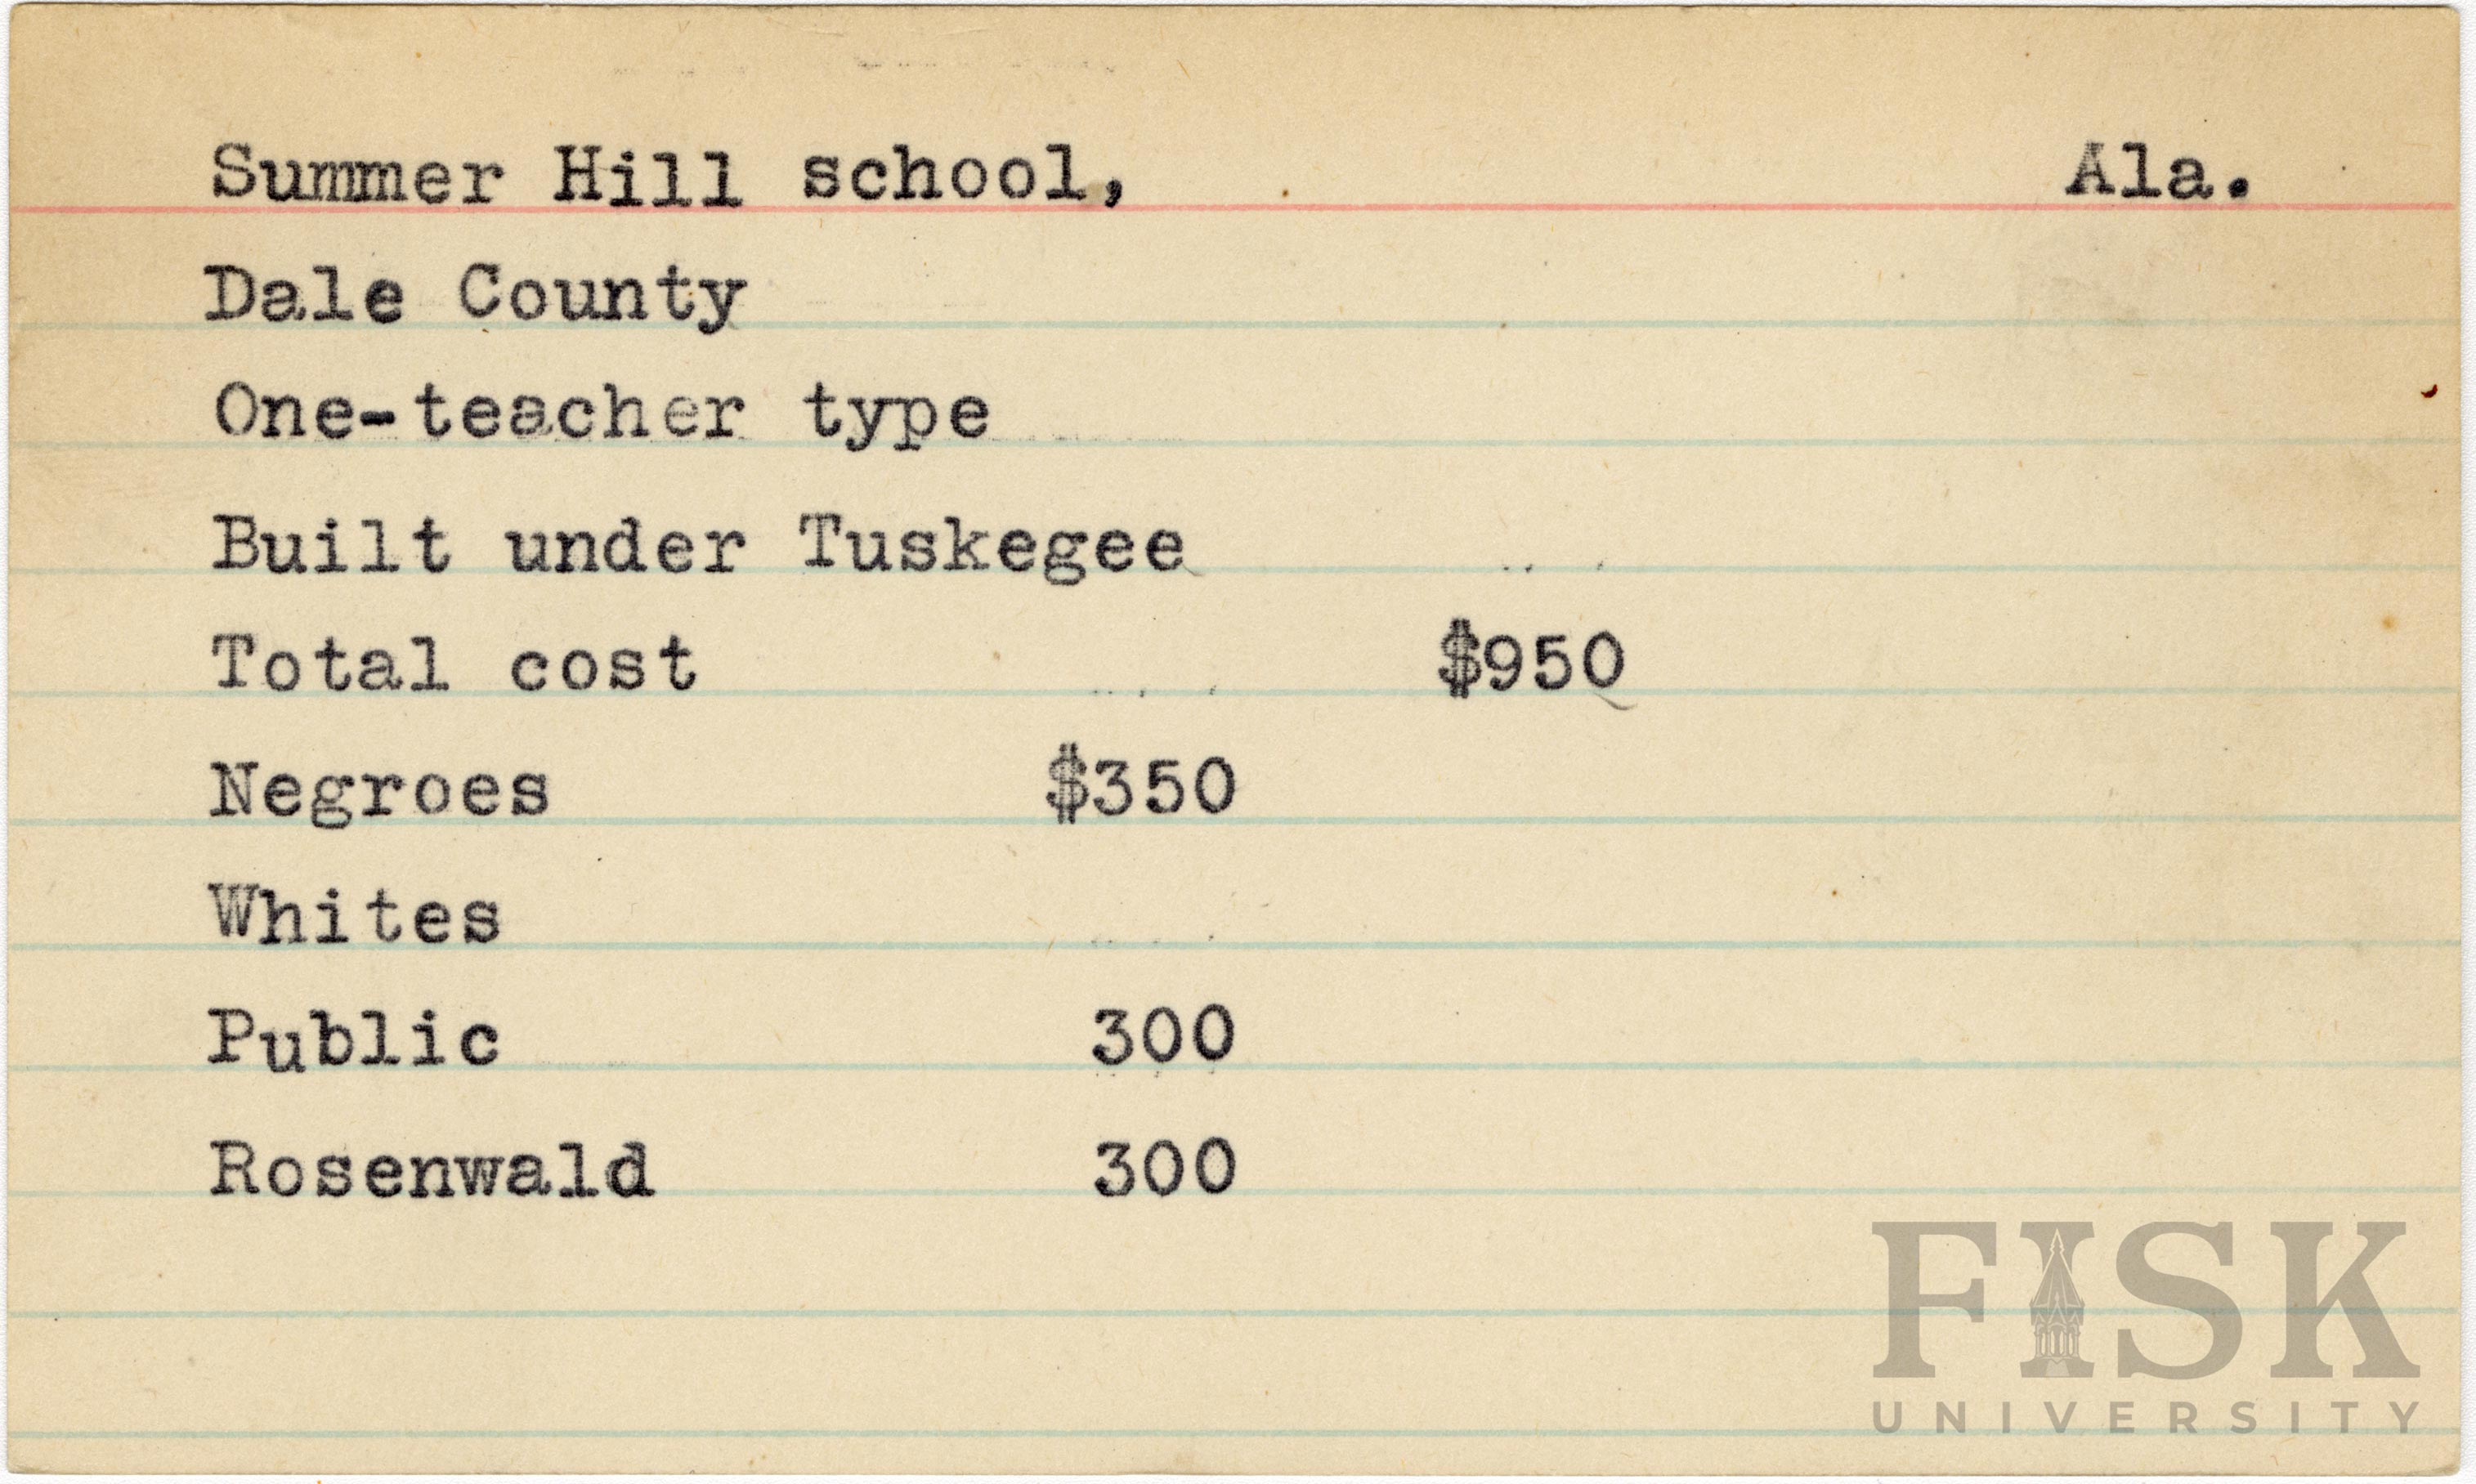 Summer Hill school, Ala.
Dale County
One-teacher type
Built under Tuskegee
Total cost $950
Negroes $350
Whites
Public 300
Rosenwald 300
FISK
UNIVERSITY